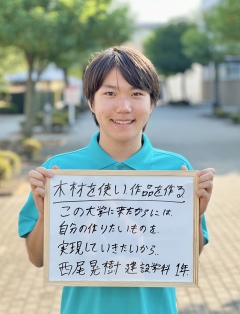 木材を使い作品を作る
この大学に来たからには、
自分の作りたいものを、
実現していきたいから。
西尾晃樹 建設学科 1年